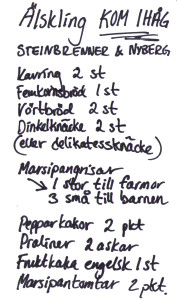 Älskling KOM IHÅG
STEINBRENNER & NYBERG
Kavring 2 st
Femkornsbröd 1 st
Vörtbröd 2 st
Dinkelknäcke 2 st
(eller delikatessknäcke)
Marsipangrisar
→ 1 stor till farmor
3 små till barnen
Pepparkakor 2 pkt
Praliner 2 askar
Fruktkaka engelsk 1 st
Marsipantomtar 2 pkt.